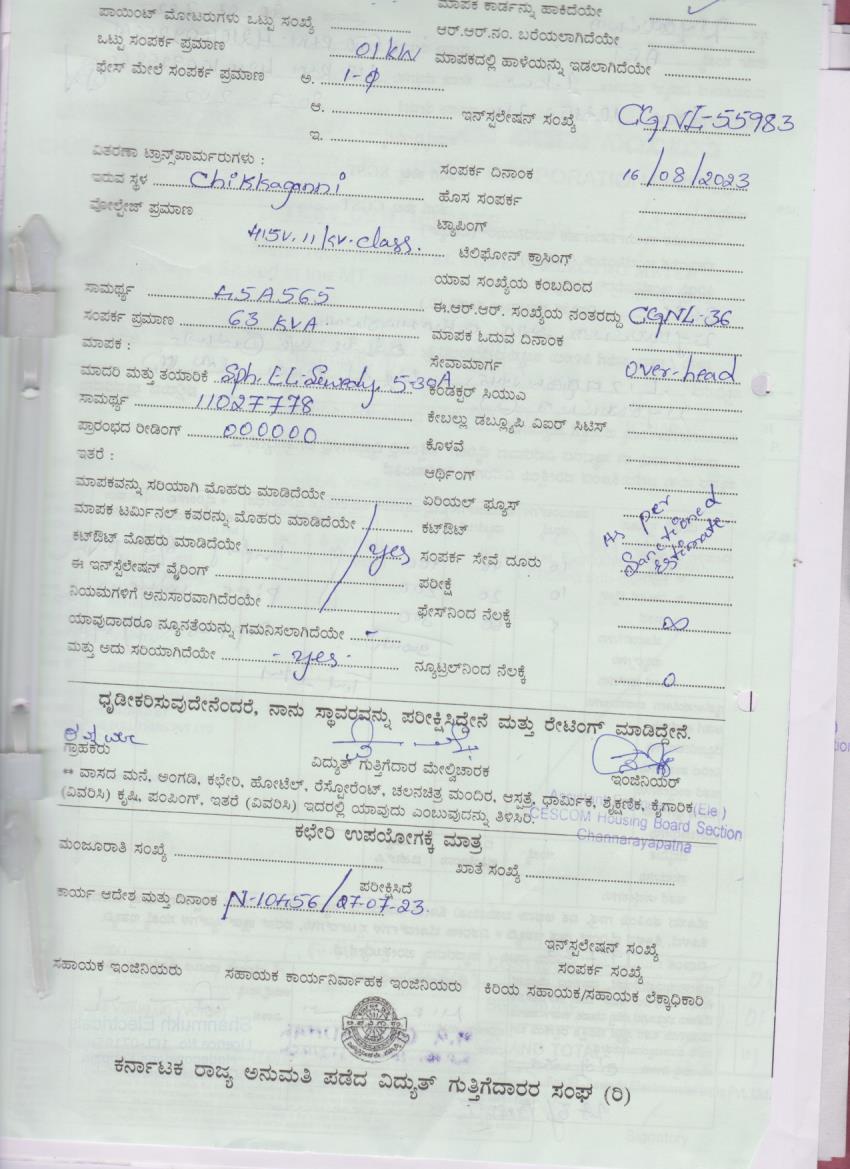 ಮಾಪಕ ಕಾರ್ಡನ್ನು ಹಾಕಿದೆಯೇ
ಪಾಯಿಂಟ್ ಮೋಟರುಗಳು ಒಟ್ಟು ಸಂಖ್ಯೆ
ಆರ್.ಆರ್.ನಂ. ಬರೆಯಲಾಗಿದೆಯೇ
ಒಟ್ಟು ಸಂಪರ್ಕ ಪ್ರಮಾಣ 01KW
ಮಾಪಕದಲ್ಲಿ ಹಾಳೆಯನ್ನು ಇಡಲಾಗಿದೆಯೇ
ಫೇಸ್ ಮೇಲೆ ಸಂಪರ್ಕ ಪ್ರಮಾಣ ಅ. 1-Φ
ಆ.
ಇನ್‌ಸ್ಟಲೇಷನ್ ಸಂಖ್ಯೆ CGNL-55983
ಇ.
ವಿತರಣಾ ಟ್ರಾನ್ಸ್‌ಪಾರ್ಮರುಗಳು :
ಸಂಪರ್ಕ ದಿನಾಂಕ 16/08/2023
ಇರುವ ಸ್ಥಳ Chikkaganni
ಹೊಸ ಸಂಪರ್ಕ
ವೋಲ್ಟೇಜ್ ಪ್ರಮಾಣ
ಟ್ಯಾಪಿಂಗ್
415V. 11/KV-class.
ಟೆಲಿಫೋನ್ ಕ್ರಾಸಿಂಗ್
ಯಾವ ಸಂಖ್ಯೆಯ ಕಂಬದಿಂದ
ಸಾಮರ್ಥ್ಯ A5A565
ಈ.ಆರ್.ಆರ್. ಸಂಖ್ಯೆಯ ನಂತರದ್ದು CGNL-36
ಸಂಪರ್ಕ ಪ್ರಮಾಣ 63 KVA
ಮಾಪಕ ಓದುವ ದಿನಾಂಕ
ಮಾಪಕ :
ಸೇವಾಮಾರ್ಗ over-head
ಮಾದರಿ ಮತ್ತು ತಯಾರಿಕೆ 5-30A
ಕಂಡಕ್ಟರ್ ಸಿಯುವಿ
ಸಾಮರ್ಥ್ಯ 11027778
ಕೇಬಲ್ಲು ಡಬ್ಲ್ಯೂಪಿ ವಿಐರ್ ಸಿಟಿಸ್
ಪ್ರಾರಂಭದ ರೀಡಿಂಗ್ 000000
ಕೊಳವೆ
ಇತರೆ :
ಆರ್ಥಿಂಗ್
ಮಾಪಕವನ್ನು ಸರಿಯಾಗಿ ಮೊಹರು ಮಾಡಿದೆಯೇ
ಏರಿಯಲ್ ಫ್ಯೂಸ್
ಮಾಪಕ ಟರ್ಮಿನಲ್ ಕವರನ್ನು ಮೊಹರು ಮಾಡಿದೆಯೇ
ಕಟ್‌ಔಟ್
As per
Sanctioned
Estimate
ಕಟ್‌ಔಟ್ ಮೊಹರು ಮಾಡಿದೆಯೇ yes
ಸಂಪರ್ಕ ಸೇವೆ ದೂರು
ಈ ಇನ್‌ಸ್ಟಲೇಷನ್ ವೈರಿಂಗ್
ಪರೀಕ್ಷೆ
ನಿಯಮಗಳಿಗೆ ಅನುಸಾರವಾಗಿದೆರಯೇ
ಫೇಸ್‌ನಿಂದ ನೆಲಕ್ಕೆ ∞
ಯಾವುದಾದರೂ ನ್ಯೂನತೆಯನ್ನು ಗಮನಿಸಲಾಗಿದೆಯೇ -
ಮತ್ತು ಅದು ಸರಿಯಾಗಿದೆಯೇ - yes -
ನ್ಯೂಟ್ರಲ್‌ನಿಂದ ನೆಲಕ್ಕೆ 0
ಧೃಡೀಕರಿಸುವುದೇನೆಂದರೆ, ನಾನು ಸ್ಥಾವರವನ್ನು ಪರೀಕ್ಷಿಸಿದ್ದೇನೆ ಮತ್ತು ರೇಟಿಂಗ್ ಮಾಡಿದ್ದೇನೆ.
ಗ್ರಾಹಕರು
ವಿದ್ಯುತ್ ಗುತ್ತಿಗೆದಾರ ಮೇಲ್ವಿಚಾರಕ
ಇಂಜಿನಿಯರ್
** ವಾಸದ ಮನೆ, ಅಂಗಡಿ, ಕಛೇರಿ, ಹೋಟೆಲ್, ರೆಸ್ಟೋರೆಂಟ್, ಚಲನಚಿತ್ರ ಮಂದಿರ, ಆಸ್ಪತ್ರೆ, ಧಾರ್ಮಿಕ, ಶೈಕ್ಷಣಿಕ, ಕೈಗಾರಿಕ
(ವಿವರಿಸಿ) ಕೃಷಿ, ಪಂಪಿಂಗ್, ಇತರೆ (ವಿವರಿಸಿ) ಇದರಲ್ಲಿ ಯಾವುದು ಎಂಬುವುದನ್ನು ತಿಳಿಸಿರಿ.
(Ele )
CESCOM Housing Board Section
Channarayapatna
ಕಛೇರಿ ಉಪಯೋಗಕ್ಕೆ ಮಾತ್ರ
ಮಂಜೂರಾತಿ ಸಂಖ್ಯೆ
ಖಾತೆ ಸಂಖ್ಯೆ
ಪರೀಕ್ಷಿಸಿದೆ
ಕಾರ್ಯ ಆದೇಶ ಮತ್ತು ದಿನಾಂಕ N-10456/27-07-23.
ಇನ್‌ಸ್ಟಲೇಷನ್ ಸಂಖ್ಯೆ
ಸಂಪರ್ಕ ಸಂಖ್ಯೆ
ಸಹಾಯಕ ಇಂಜಿನಿಯರು
ಸಹಾಯಕ ಕಾರ್ಯನಿರ್ವಾಹಕ ಇಂಜಿನಿಯರು
ಕಿರಿಯ ಸಹಾಯಕ/ಸಹಾಯಕ ಲೆಕ್ಕಾಧಿಕಾರಿ
ಕರ್ನಾಟಕ ರಾಜ್ಯ ಅನುಮತಿ ಪಡೆದ ವಿದ್ಯುತ್ ಗುತ್ತಿಗೆದಾರರ ಸಂಘ (ರಿ)